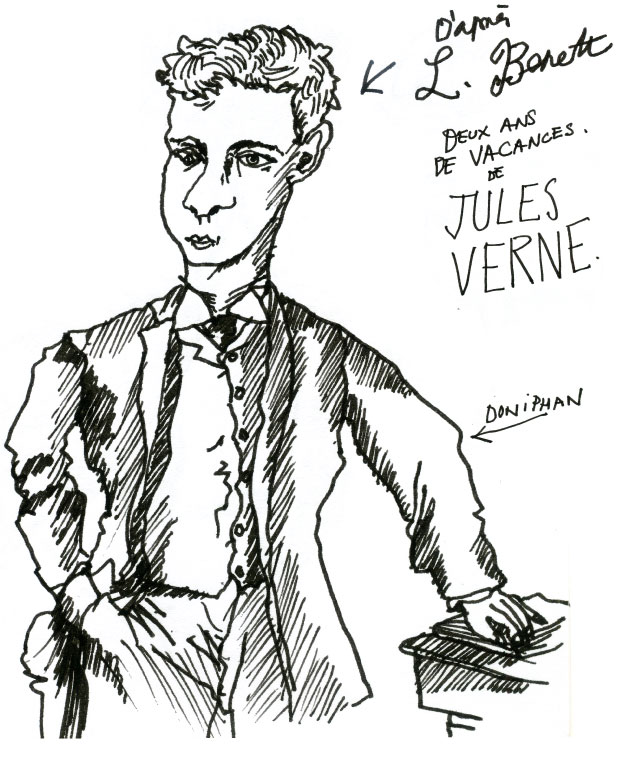 D'après
L. Benett
DEUX ANS
DE VACANCES.
DE
JULES
VERNE.
DONIPHAN